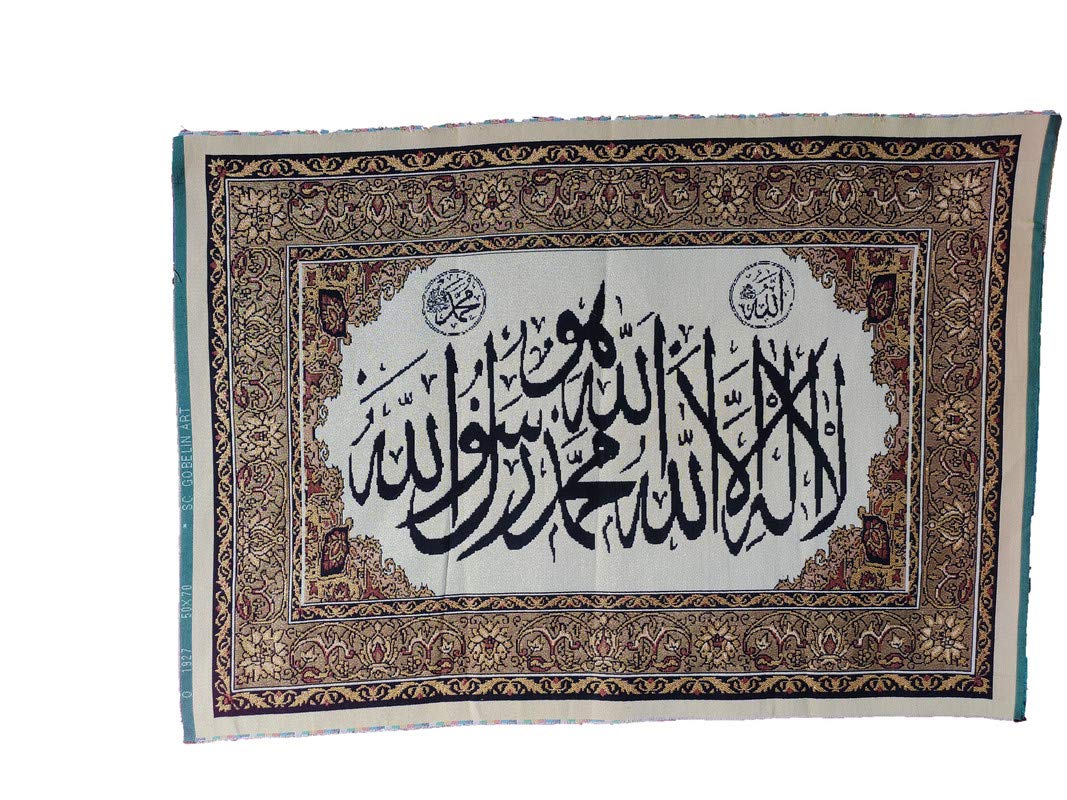 الله
محمد
لا اله الا الله محمد رسول الله
هو الله
O 1927 50X70 * SC GOBELIN ART